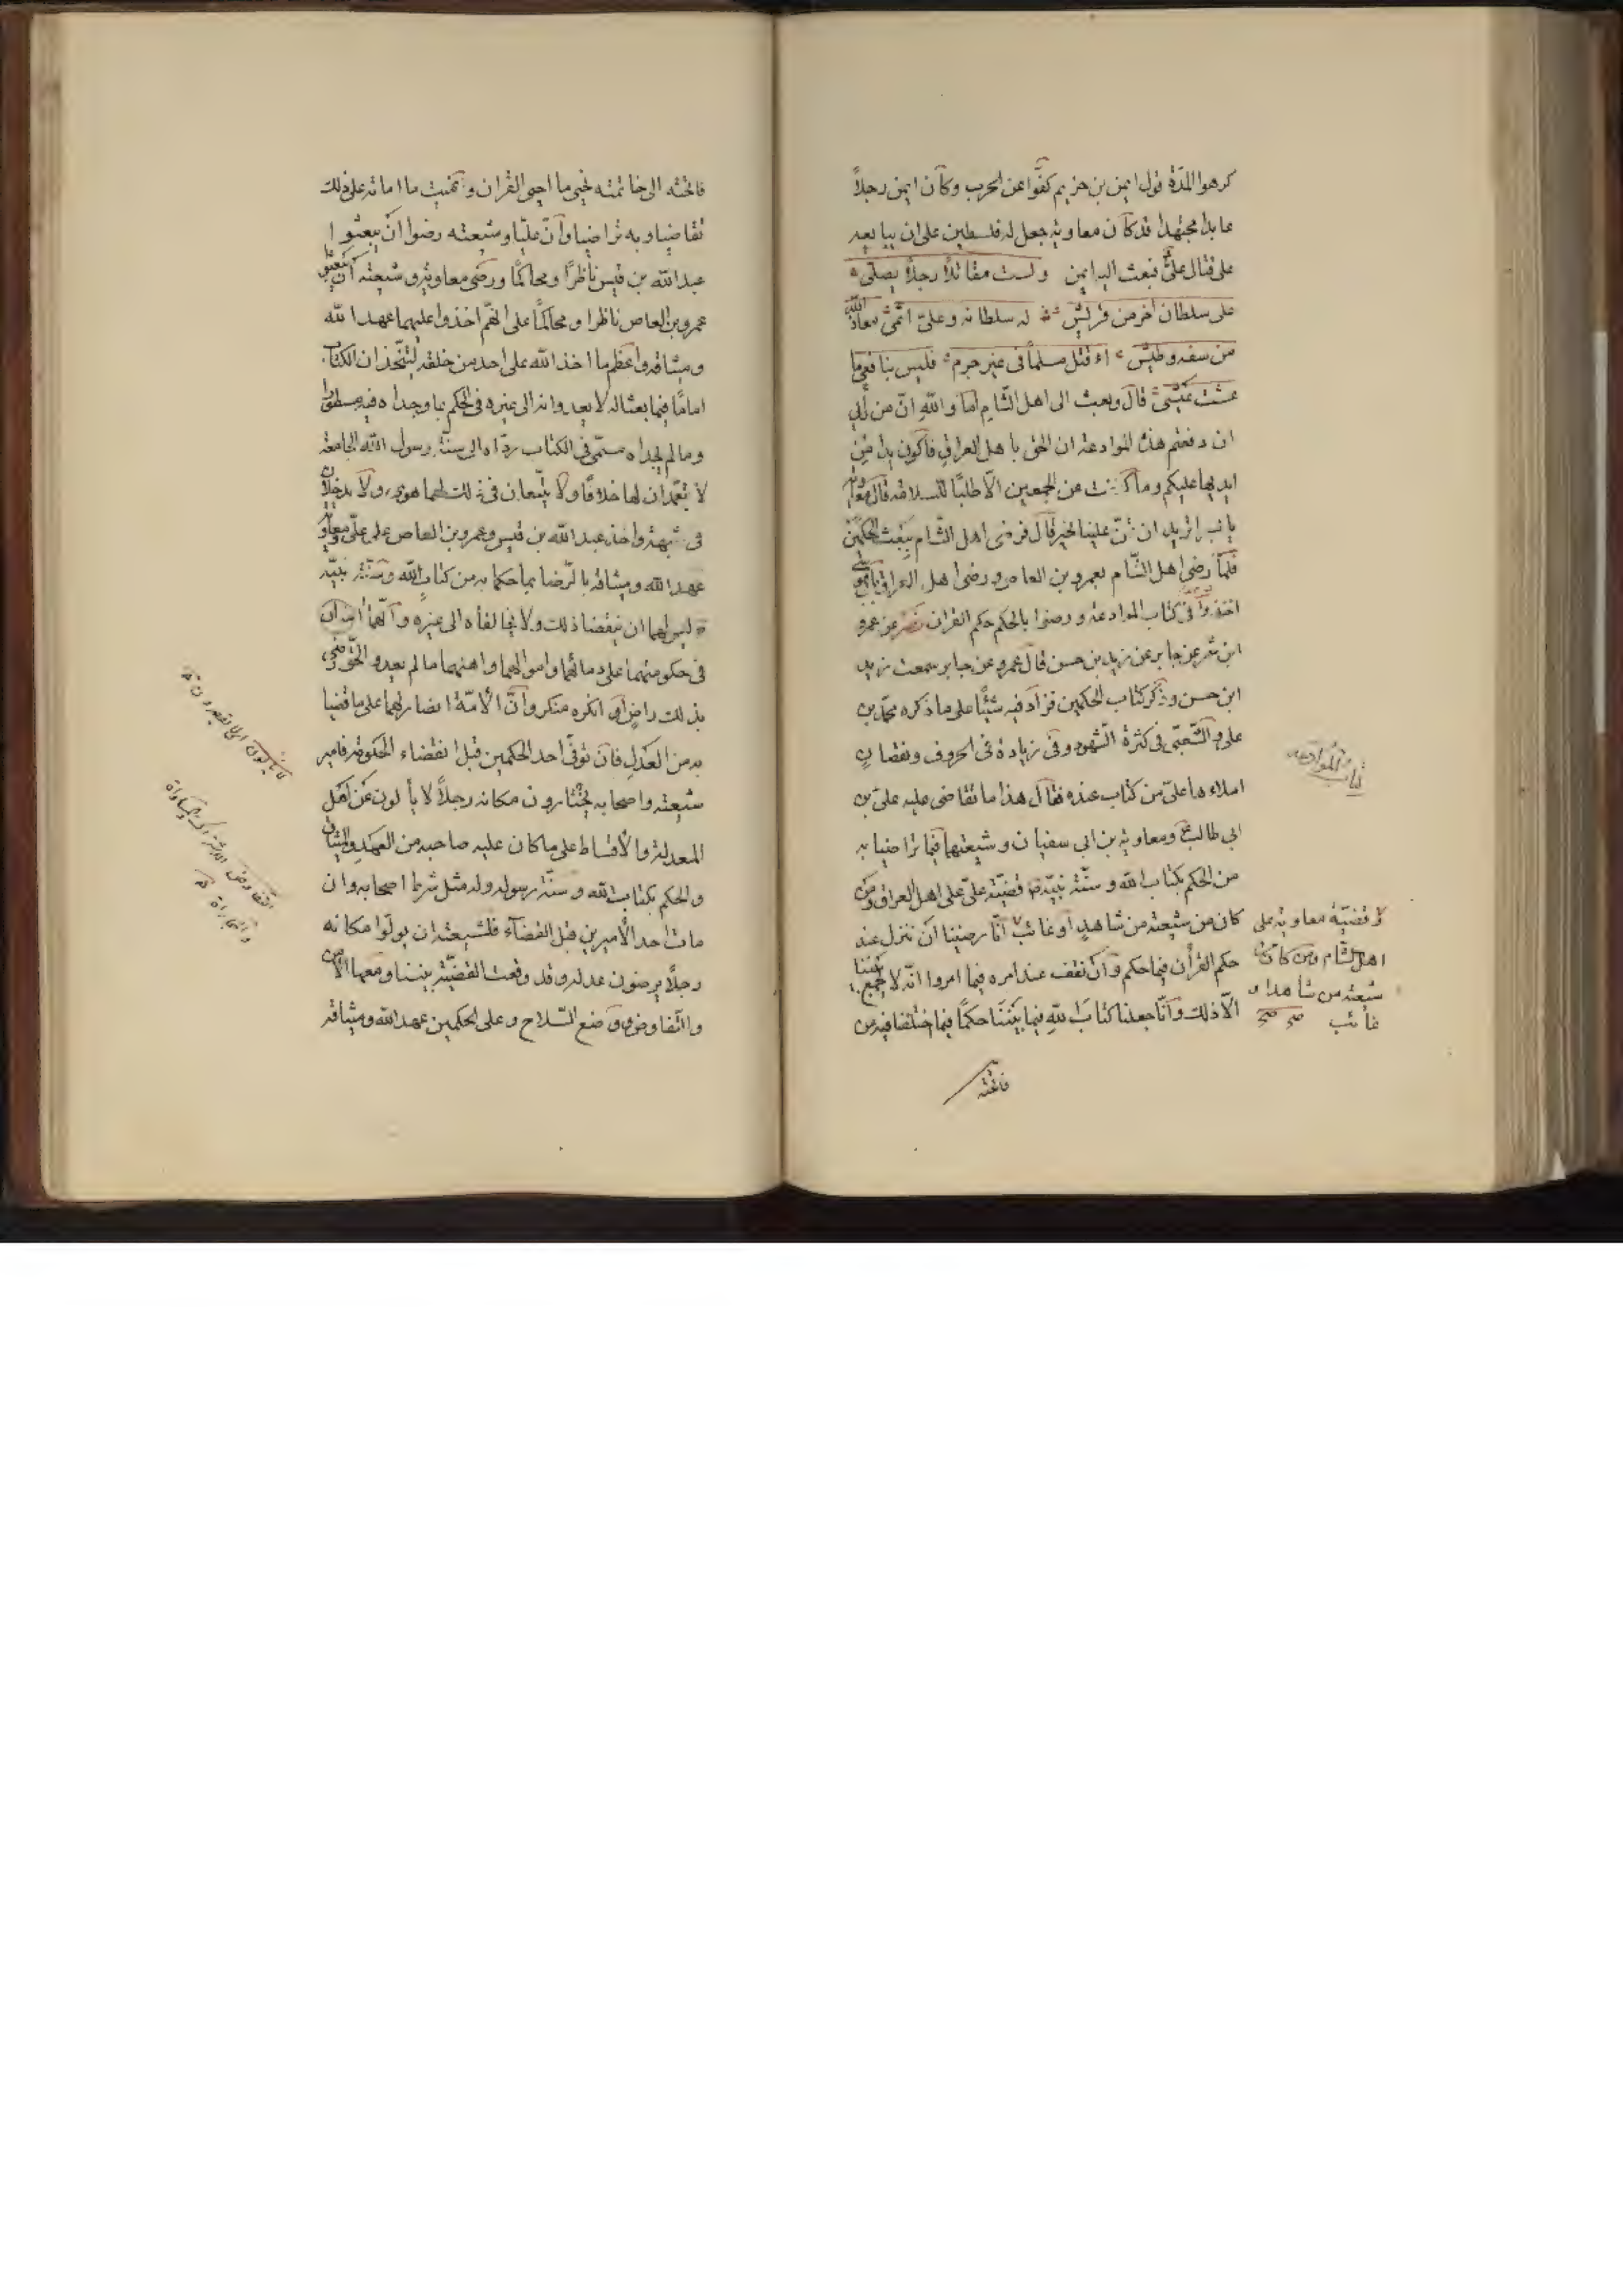 كرهوا المدّة قول ايمن بن خزيم كفّوا عن الحرب وكان ايمن رجلاً
عابدا مجتهدا قد كان معاوية جعل له فلسطين على ان يبايعه
على قتال علىّ فبعث اليه ايمن ولست مقاتلاً رجلاً يصلّى
على سلطان اخر من قريش له سلطانه وعلىّ اثمى معاذ الله
من سفه وطيش أء قتل مسلماً فى غير جرم فليس بنافعى ما
عشت عيشى قال وبعث الى اهل الشام اما والله انّ من رأيى
ان دفعتم هذه الموادعة ان الحق باهل العراق فاكون يدا من
ايديها عليكم وما كنت من الجمعين الّا طلبًا للسلامة قال معوية
يا ايمن اتريد ان تمنّ علينا بخير قال فرضى اهل الشام ببعث الحكمين
فلمّا رضى اهل الشام بعمرو بن العاص ورضى اهل العراق بابى موسى
اخذوا فى كتاب الموادعة ورضوا بالحكم حكم القران نصر عن عمرو
ابن شمر عن جابر عن زيد بن حسن قال عمرو عن جابر سمعت زيد
ابن حسن وذكر كتاب الحكمين فزاد فيه شيئًا على ما ذكره محمّد بن
علىّ والشعبى فى كثرة الشهود وفى زيادة فى الحروف ونقصان
املاء ها علىّ من كتاب عنده فقال هذا ما تقاضى عليه علىّ بن
ابى طالب ع ومعاوية بن ابى سفيان وشيعتهما فيما تراضيا به
من الحكم بكتاب الله وسنّة نبيّه ص قضيّة علىّ على اهل العراق ومن
كان من شيعته من شاهد او غائب انّا رضينا ان ننزل عند
حكم القرأن فيما حكم وان نقف عند امره فيما امروا انّه لا يجمع بيننا
الّا ذلك وانّا جعلنا كتاب الله فيما بيننا حكمًا فيما اختلفنا فيه من
فاتحته
كتاب الموادعه
و قضيّة معاوية على
اهل الشام ومن كان من
شيعته من شاهد او
غائب صح صح
فاتحته الى خاتمته نحيى ما احيى القران ونميت ما اماته على ذلك
تقاضيا وبه تراضيا وانّ عليّا وشيعته رضوا ان يبعثوا
عبد الله بن قيس ناظرًا ومحاكمًا ورضى معاوية وشيعته ان يبعثوا
عمرو بن العاص ناظرا ومحاكمًا على انّهم اخذوا عليهما عهد الله
وميثاقه واعظم ما اخذ الله على احد من خلقه ليتّخذان الكتاب
امامًا فيما بعثا له لا يعدوانه الى غيره فى الحكم بما وجداه فيه مسطورا
وما لم يجداه مسمّى فى الكتاب ردّاه الى سنّة رسول الله الجامعة
لا يتعمّدان لها خلافًا ولا يتّبعان فى ذلك لهما هوى ولا يدخلان
فى شبهة واخذ عبد الله بن قيس وعمرو بن العاص على علىّ ومعاوية
عهد الله وميثاقه بالرّضا بما حكما به من كتاب الله وسنّة نبيّه
وليس لهما ان ينقضا ذلك ولا يخالفاه الى غيره وانّهما امنان
فى حكومتهما على دمائهما واموالهما واهلهما ما لم يعدوا الحقّ رضى
بذلك راضٍ او انكره منكر وانّ الامّة انصار لهما على ما قضيا
به من العدل فان توفّى احد الحكمين قبل انقضاء الحكومة فامير
شيعته واصحابه يختارون مكانه رجلاً لا يألون عن اهل
المعدلة والاقساط على ما كان عليه صاحبه من العهد والميثاق
والحكم بكتاب الله وسنّة رسوله وله مثل شرط اصحابه وان
مات احد الأميرين قبل القضآء فلشيعته ان يولّوا مكانه
رجلاً يرضون عدله وقد وقعت القضيّة بيننا ومعها الأمن
والتّفاوض ووضع السّلاح وعلى الحكمين عهد الله وميثاقه